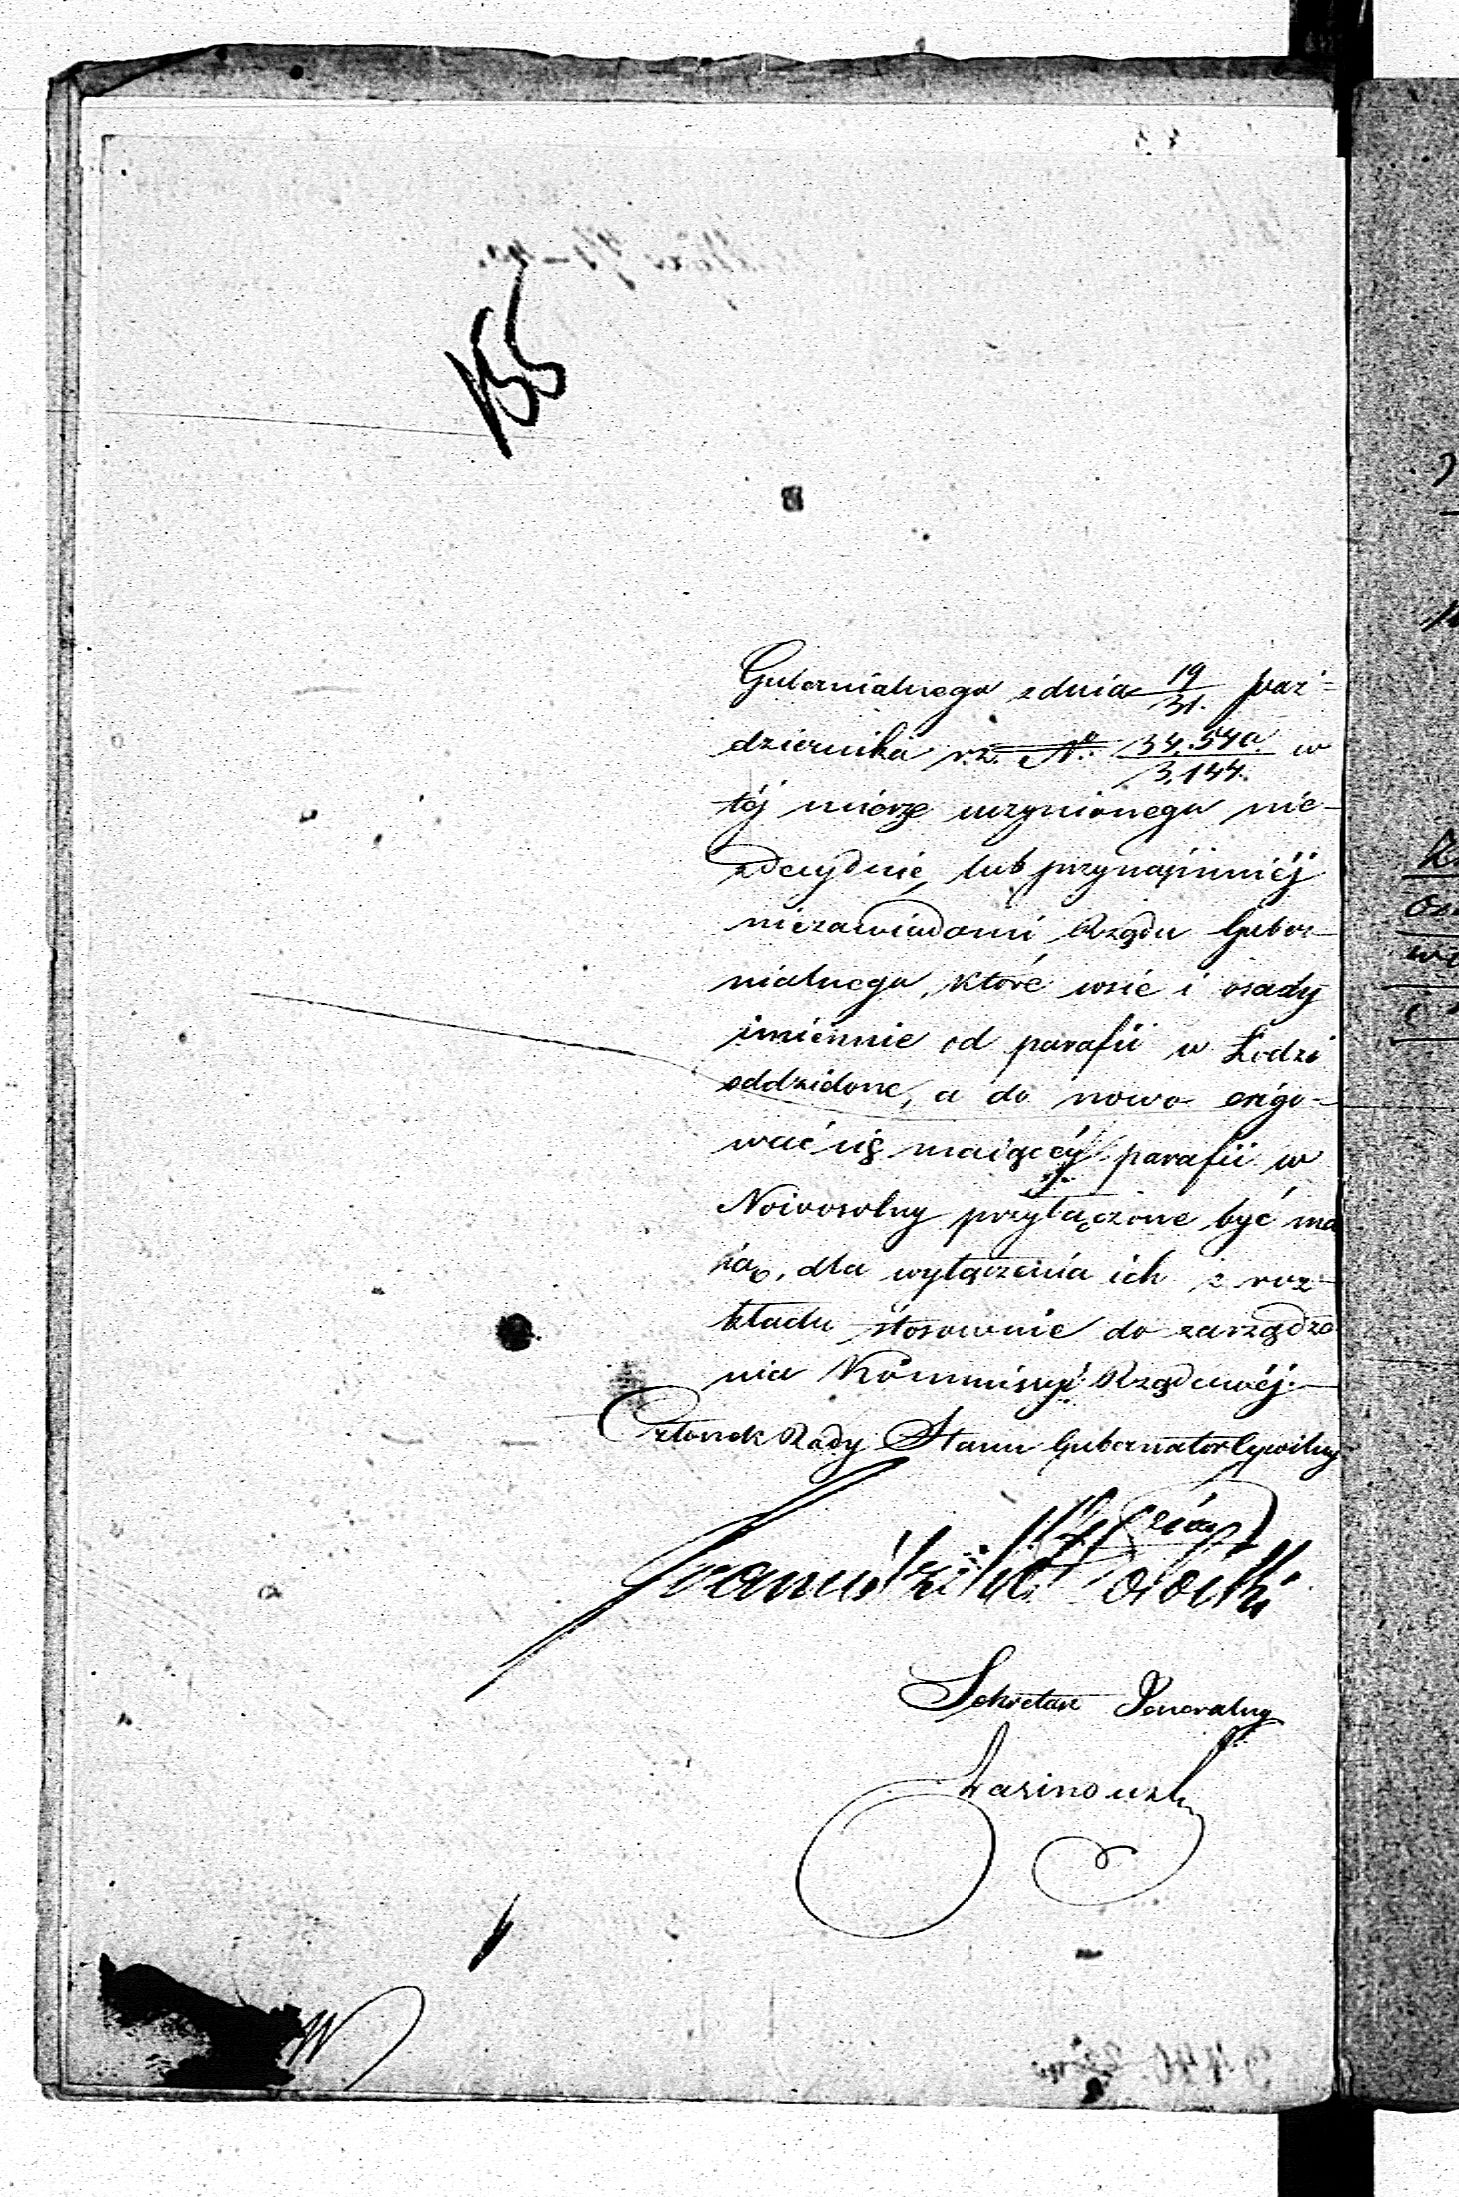 155
Gubernialnego z dnia 19/31. paź-
dziernika r.z. N: 34.540/3,144. w
téj miérze uczynionego nie-
zdecyduie, lub przynajmniéj
niezawiadomi Rządu Guber-
nialnego, które wsie i osady
imiennie od parafii w Łodzi
oddzielone, a do nowo erigo-
wać się maiącéj parafii w
Nowosolny przyłączone być ma
ią, dla wyłączenia ich z roz-
kładu stosownie do zarządze
nia Kommissyi Rządowéj.
Członek Rady Stanu Gubernator Cywilny
Sekretarz Jeneralny